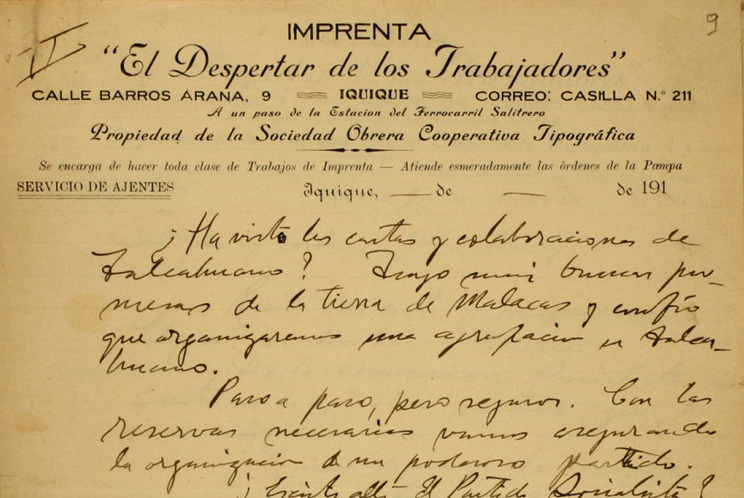 9
II
IMPRENTA
"El Despertar de los Trabajadores"
CALLE BARROS ARANA, 9 IQUIQUE CORREO: CASILLA N.º 211
A un paso de la Estacion del Ferrocarril Salitrero
Propiedad de la Sociedad Obrera Cooperativa Tipográfica
Se encarga de hacer toda clase de Trabajos de Imprenta — Atiende esmeradamente las órdenes de la Pampa
SERVICIO DE AJENTES
Iquique, de de 191
¿Ha visto las cartas y colaboraciones de
Talcahuano? Tengo muy buenas pro-
mesas de la tierra de y confío
que organizaremos una agrupacion en Talca-
huano.
Paso a paso, pero seguros. Con las
reservas necesarias vamos asegurando
la organizacion de un poderoso partido.
¿Existe allí el Partido Socialista?